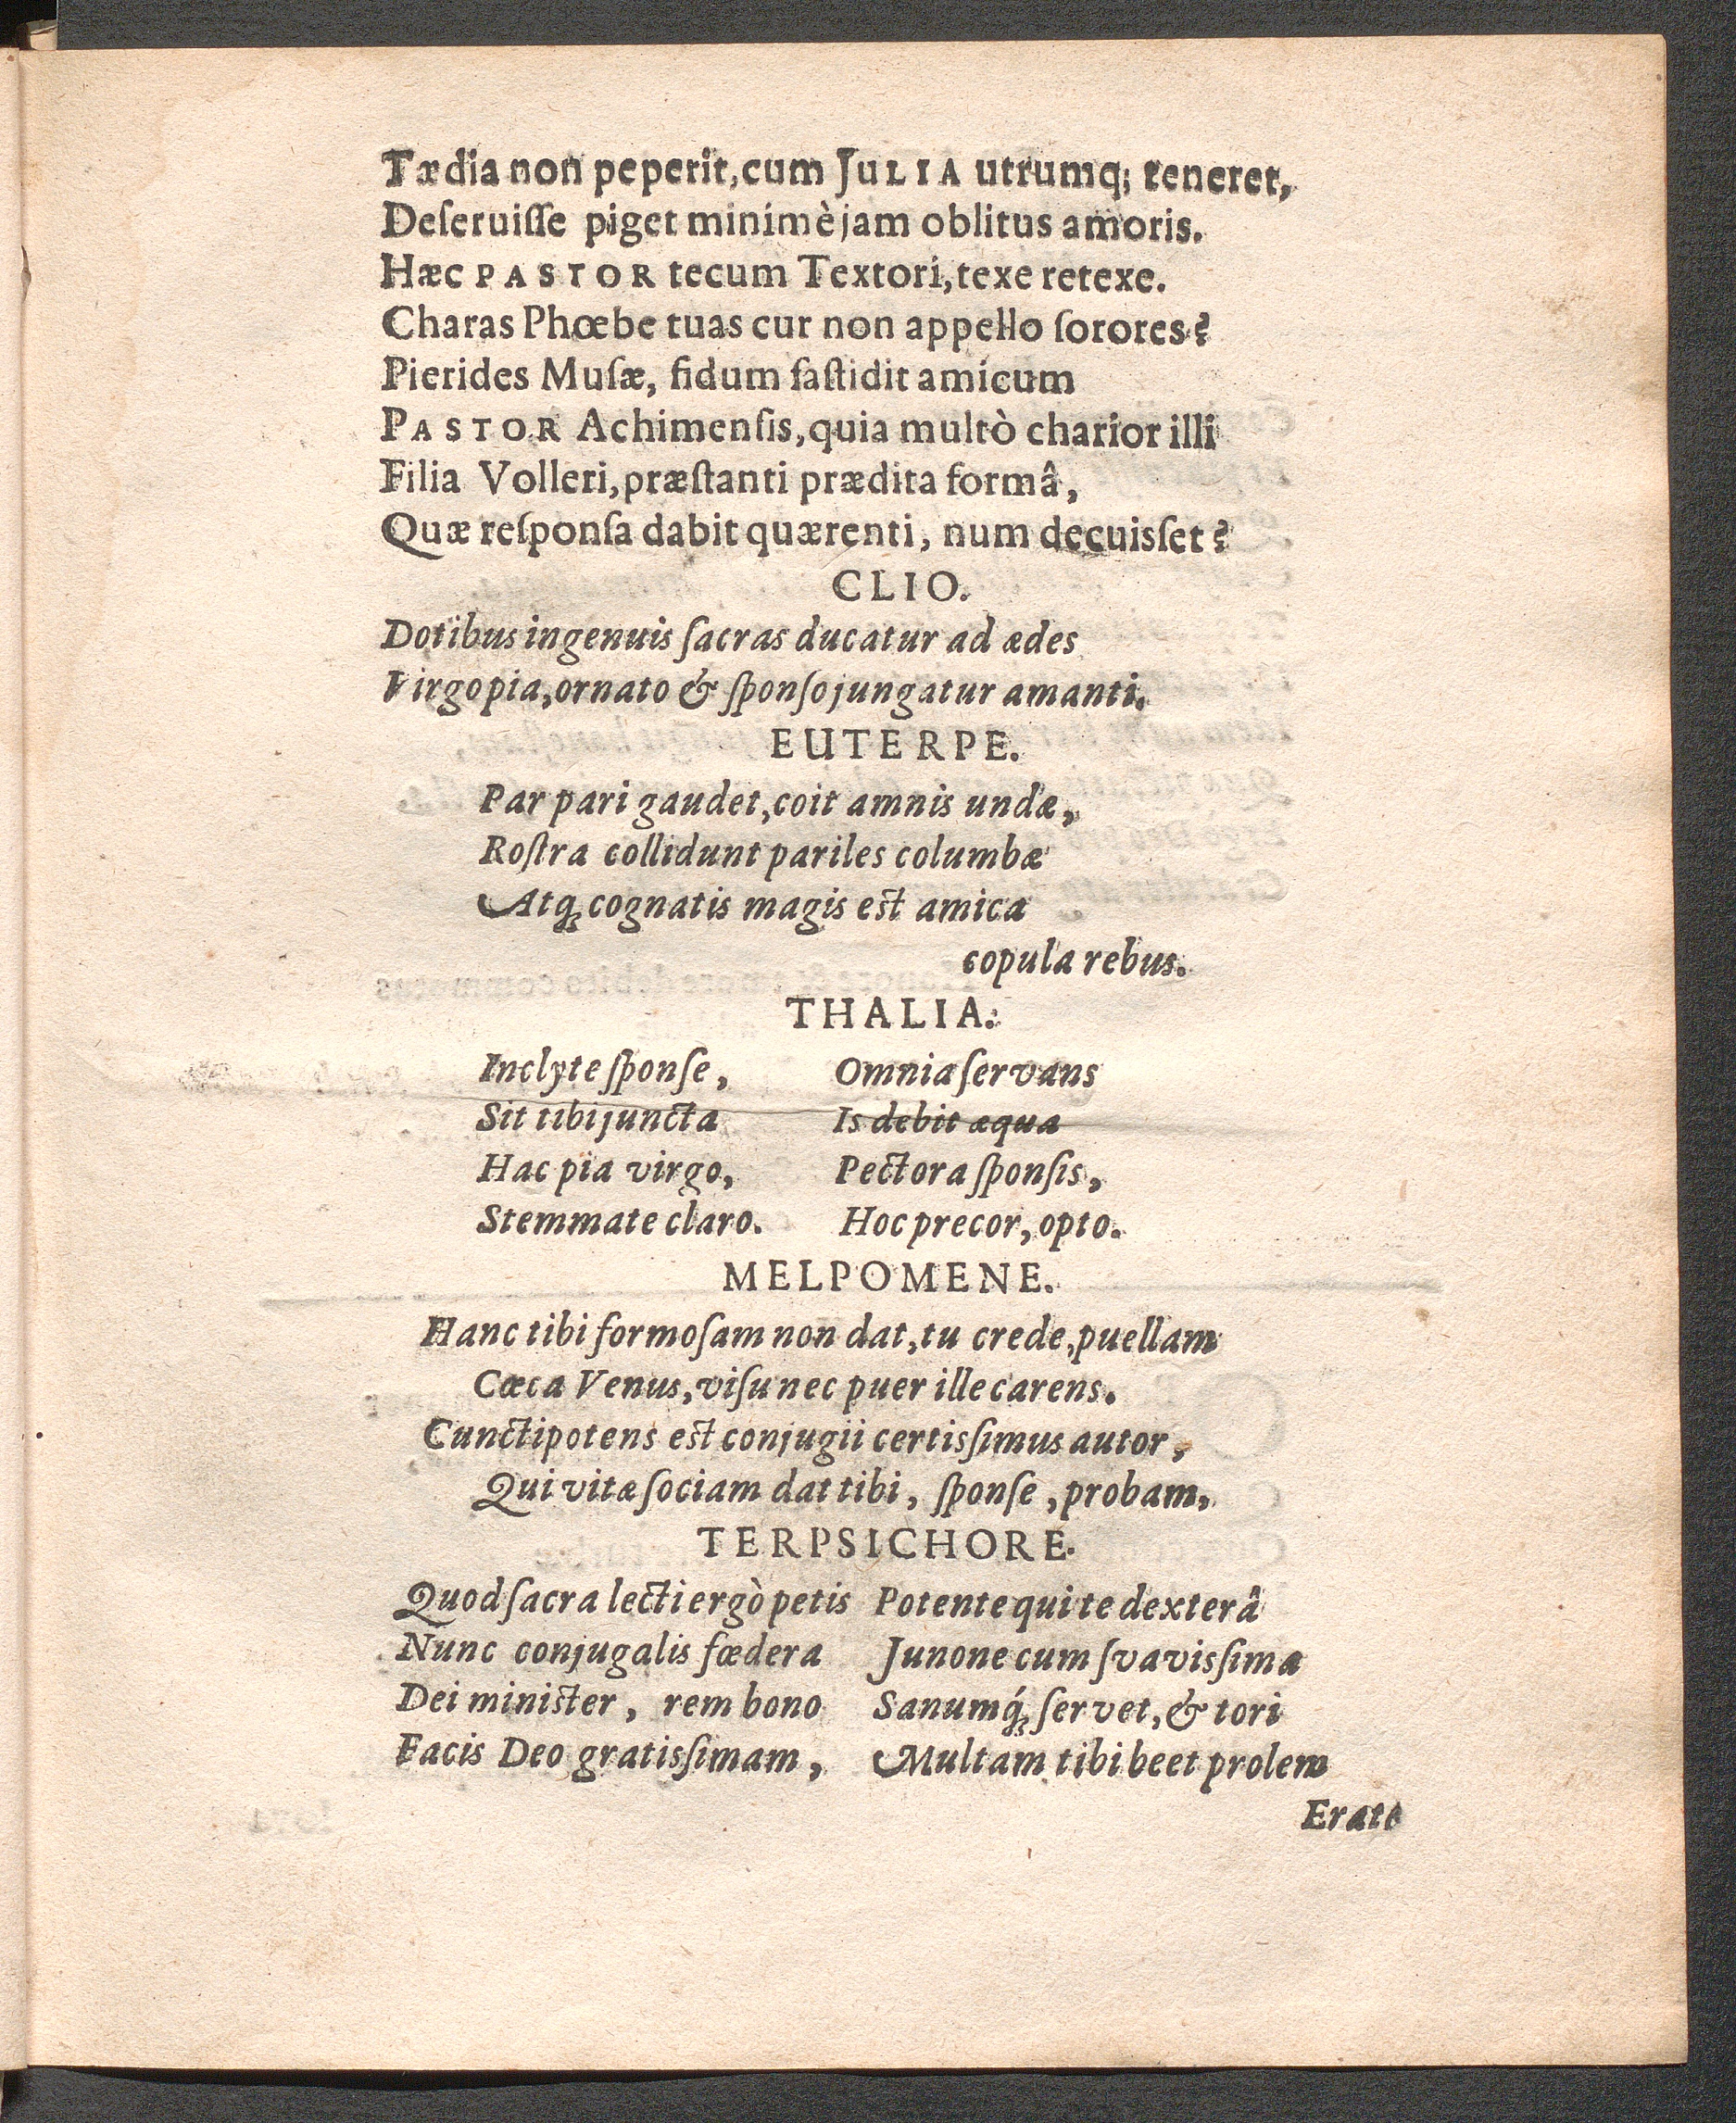 Tædia non peperit, cum JULIA utrumq; teneret,
Deſeruiſſe piget minimè jam oblitus amoris.
Hæc PASTOR tecum Textori, texe retexe.
Charas Phœbe tuas cur non appello ſorores?
Pierides Muſæ, fidum faſtidit amicum
PASTOR Achimenſis, quia multò charior illi
Filia Volleri, præſtanti prædita formâ,
Quæ reſponſa dabit quærenti, num decuisſet?
CLIO.
Dotibus ingenuis ſacras ducatur ad ædes
Virgo pia, ornato & ſponſo jungatur amanti.
EUTERPE.
Par pari gaudet, coit amnis undæ,
Roſtra collidunt pariles columbæ
Atq; cognatis magis est amica
copula rebus.
THALIA.
Inclyte ſponſe,
Sit tibi juncta
Hac pia virgo,
Stemmate claro.
Omnia ſervans
Is debit æqua
Pectora ſponſis,
Hoc precor, opto.
MELPOMENE.
Hanc tibi formoſam non dat, tu crede, puellam
Cæca Venus, viſu nec puer ille carens.
Cunctipotens est conjugii certisſimus autor,
Qui vitæ ſociam dat tibi, ſponſe, probam,
TERPSICHORE.
Quod ſacra lecti ergò petis
Nunc conjugalis fœdera
Dei minister, rem bono
Facis Deo gratisſimam,
Potente qui te dexterâ
Junone cum ſvavisſima
Sanumq́; ſervet, & tori
Multam tibi beet prolem
Erato